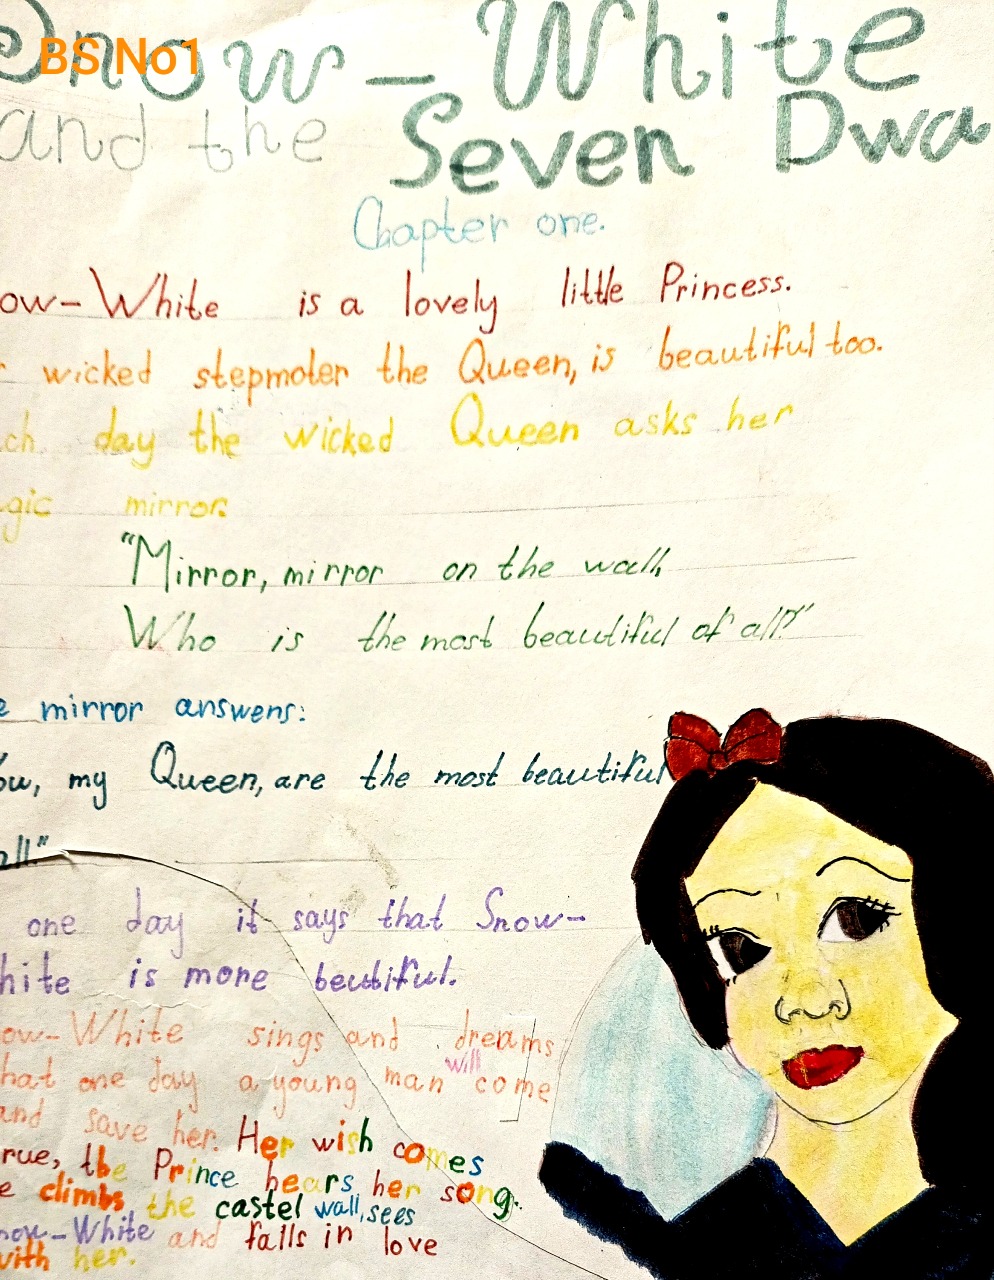 BS No1
Snow-White
and the Seven Dwa
Chapter one.
ow-White is a lovely little Princess.
r wicked stepmoter the Queen, is beautiful too.
ch day the wicked Queen asks her
gic mirror:
"Mirror, mirror on the wall,
Who is the most beautiful of all?"
e mirror answens:
ou, my Queen, are the most beautiful
all."
one day it says that Snow-
hite is more beutiful.
ow-White sings and dreams
hat one day a young man will come
and save her. Her wish comes
rue, the Prince hears her song.
e climbs the castel wall, sees
now-White and falls in love
with her.